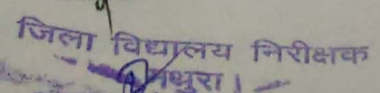 जिला विद्यालय निरीक्षक
मथुरा।